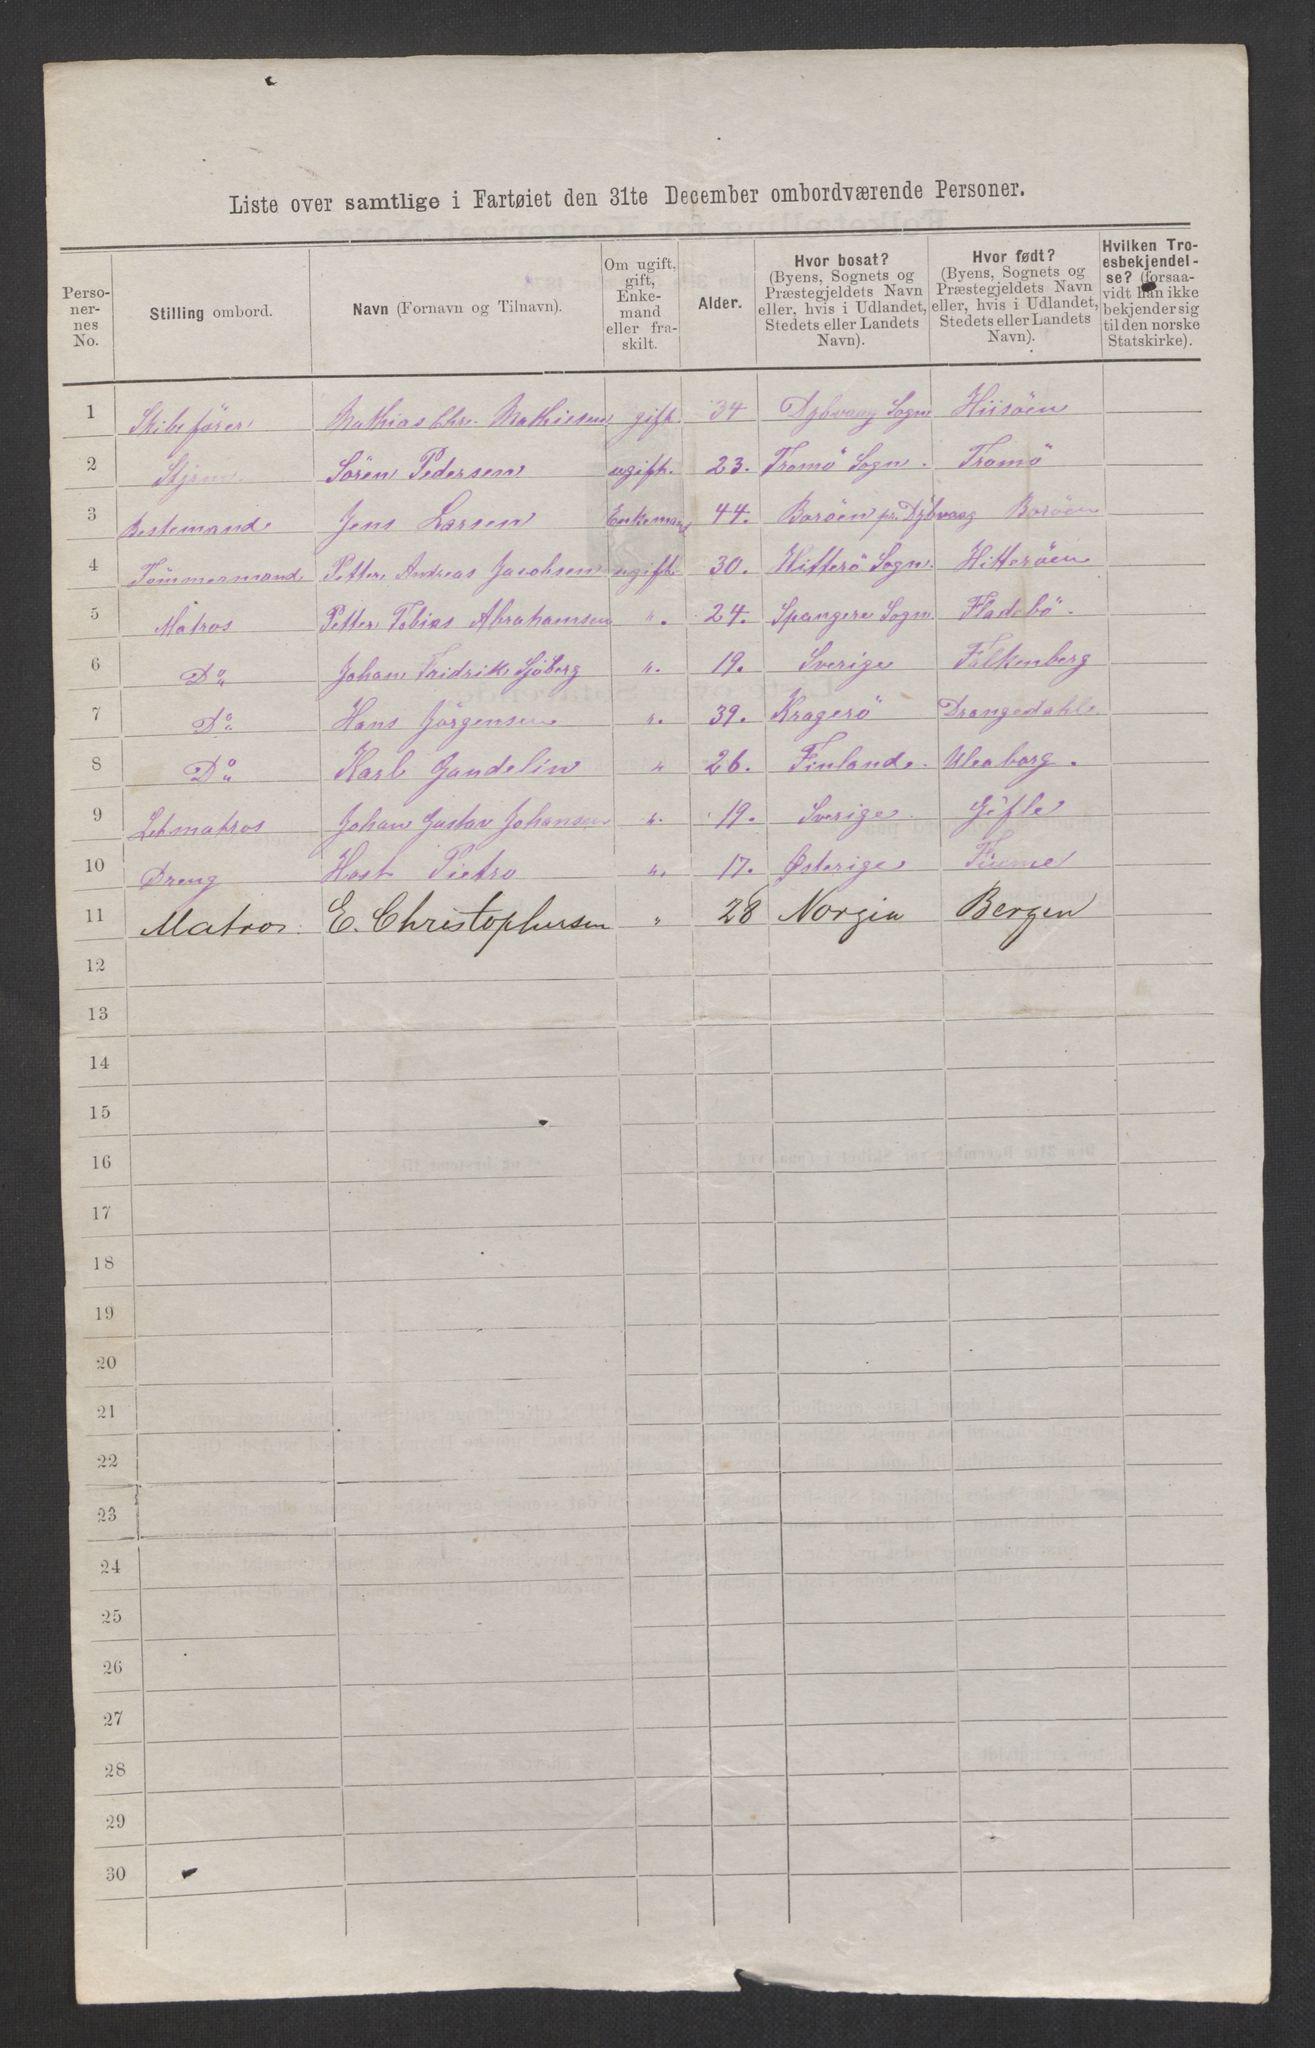 Liste over samtlige i Fartøiet den 31te December ombordværende Personer.
Perso-
ner-
nes
No.
Stilling ombord.
Navn (Fornavn og Tilnavn).
Om ugift,
gift,
Enke-
mand
eller fra-
skilt.
Alder.
Hvor bosat?
(Byens, Sognets og
Præstegjeldets Navn
eller, hvis i Udlandet,
Stedets eller Landets
Navn).
Hvor født?
(Byens, Sognets og
Præstegjeldets Navn
eller, hvis i Udlandet,
Stedets eller Landets
Navn).
Hvilken Tro-
esbekjendel-
se? (forsaa-
vidt han ikke
bekjender sig
til den norske
Statskirke).
1 Skibsfører Mathias Chr. Mathiesen gift 34 Dybvaag Sogn Hiisöen
2 Styrm Sören Pedersen ugift. 23. Tromö Sogn. Tromö
3 Bestemand Jens Larsen Enkemand 44. Boröen pr. Dybvaag Boröen
4 Tömmermand Petter Andreas Jacobsen ugift 30. Hitterö Sogn. Hitteröen
5 Matros Petter Tobias Abrahamsen ". 24. Spangere Sogn Fladebö.
6 Do Johan Fridrik Sjöberg ". 19. Sverige Falkenberg
7 Do Hans Jörgensen ". 39. Kragerö Drangedahl.
8 Do Karl Gandelin " 26. Finland. Uleaborg.
9 Letmatros Johan Gustav Johansen ". 19. Sverige Göfle
10 Dreng Host Pietro ". 17. Østerige Fiume
11 Matros. E. Christophersen " 28 Norgin Bergen
12
13
14
15
16
17
18
19
20
21
22
23
24
25
26
27
28
29
30